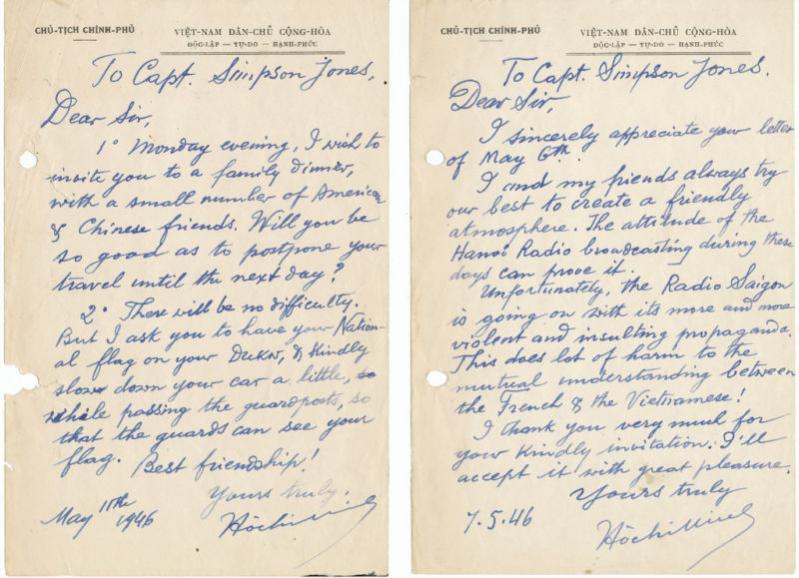 CHỦ-TỊCH CHÍNH-PHỦ
VIỆT-NAM DÂN-CHỦ CỘNG-HÒA
ĐỘC-LẬP — TỰ-DO — HẠNH-PHÚC
To Capt. Simpson Jones,
Dear Sir,
1° Monday evening, I wish to
invite you to a family dinner,
with a small number of American
& Chinese friends. Will you be
so good as to postpone your
travel until the next day?
2° There will be no difficulty.
But I ask you to have your Nation-
al flag on your & Kindly
slow down your car a little,
while passing the guardposts, so
that the guards can see your
flag. Best friendship!
Yours truly,
May 11th 1946
Hồchiminh
CHỦ-TỊCH CHÍNH-PHỦ
VIỆT-NAM DÂN-CHỦ CỘNG-HÒA
ĐỘC-LẬP — TỰ-DO — HẠNH-PHÚC
To Capt. Simpson Jones.
Dear Sir,
I sincerely appreciate your letter
of May 6th.
I and my friends always try
our best to create a friendly
atmosphere. The attitude of the
Hanoi Radio broadcasting during these
days can prove it.
Unfortunately, the Radio Saigon
is going on with its more and more
violent and insulting propaganda.
This does lot of harm to the
mutual understanding between
the French & the Vietnamese!
I thank you very much for
your kindly invitation. I'll
accept it with great pleasure.
Yours truly
7.5.46
Hồchiminh